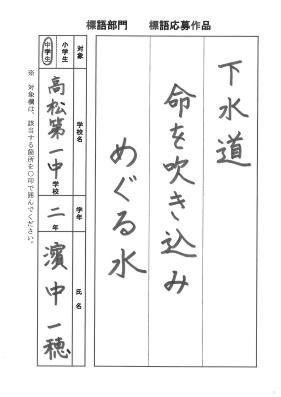 標語部門　標語応募作品
下水道
命を吹き込み
めぐる水
対象
小学生
中学生
学校名
高松第一中学校
学年
二年
氏名
濱中一穂
※　対象欄は、該当する箇所を○印で囲んでください。